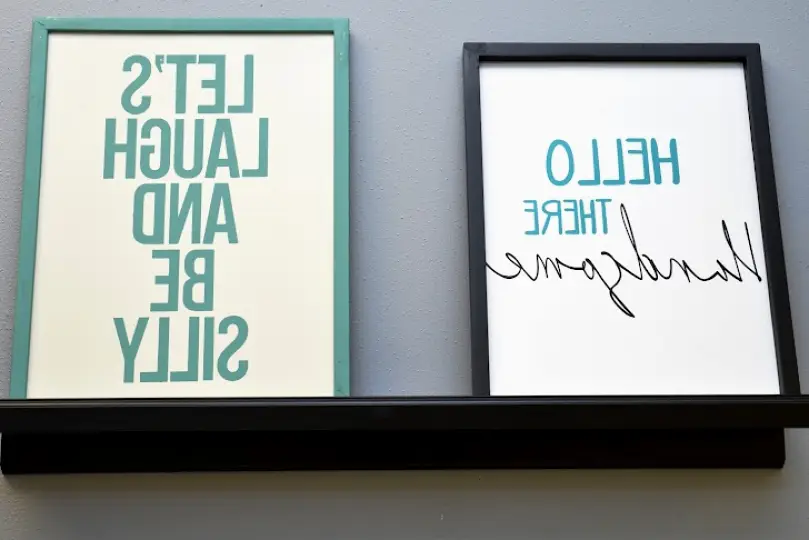 LET'S
LAUGH
AND
BE
SILLY
HELLO
THERE
Handsome